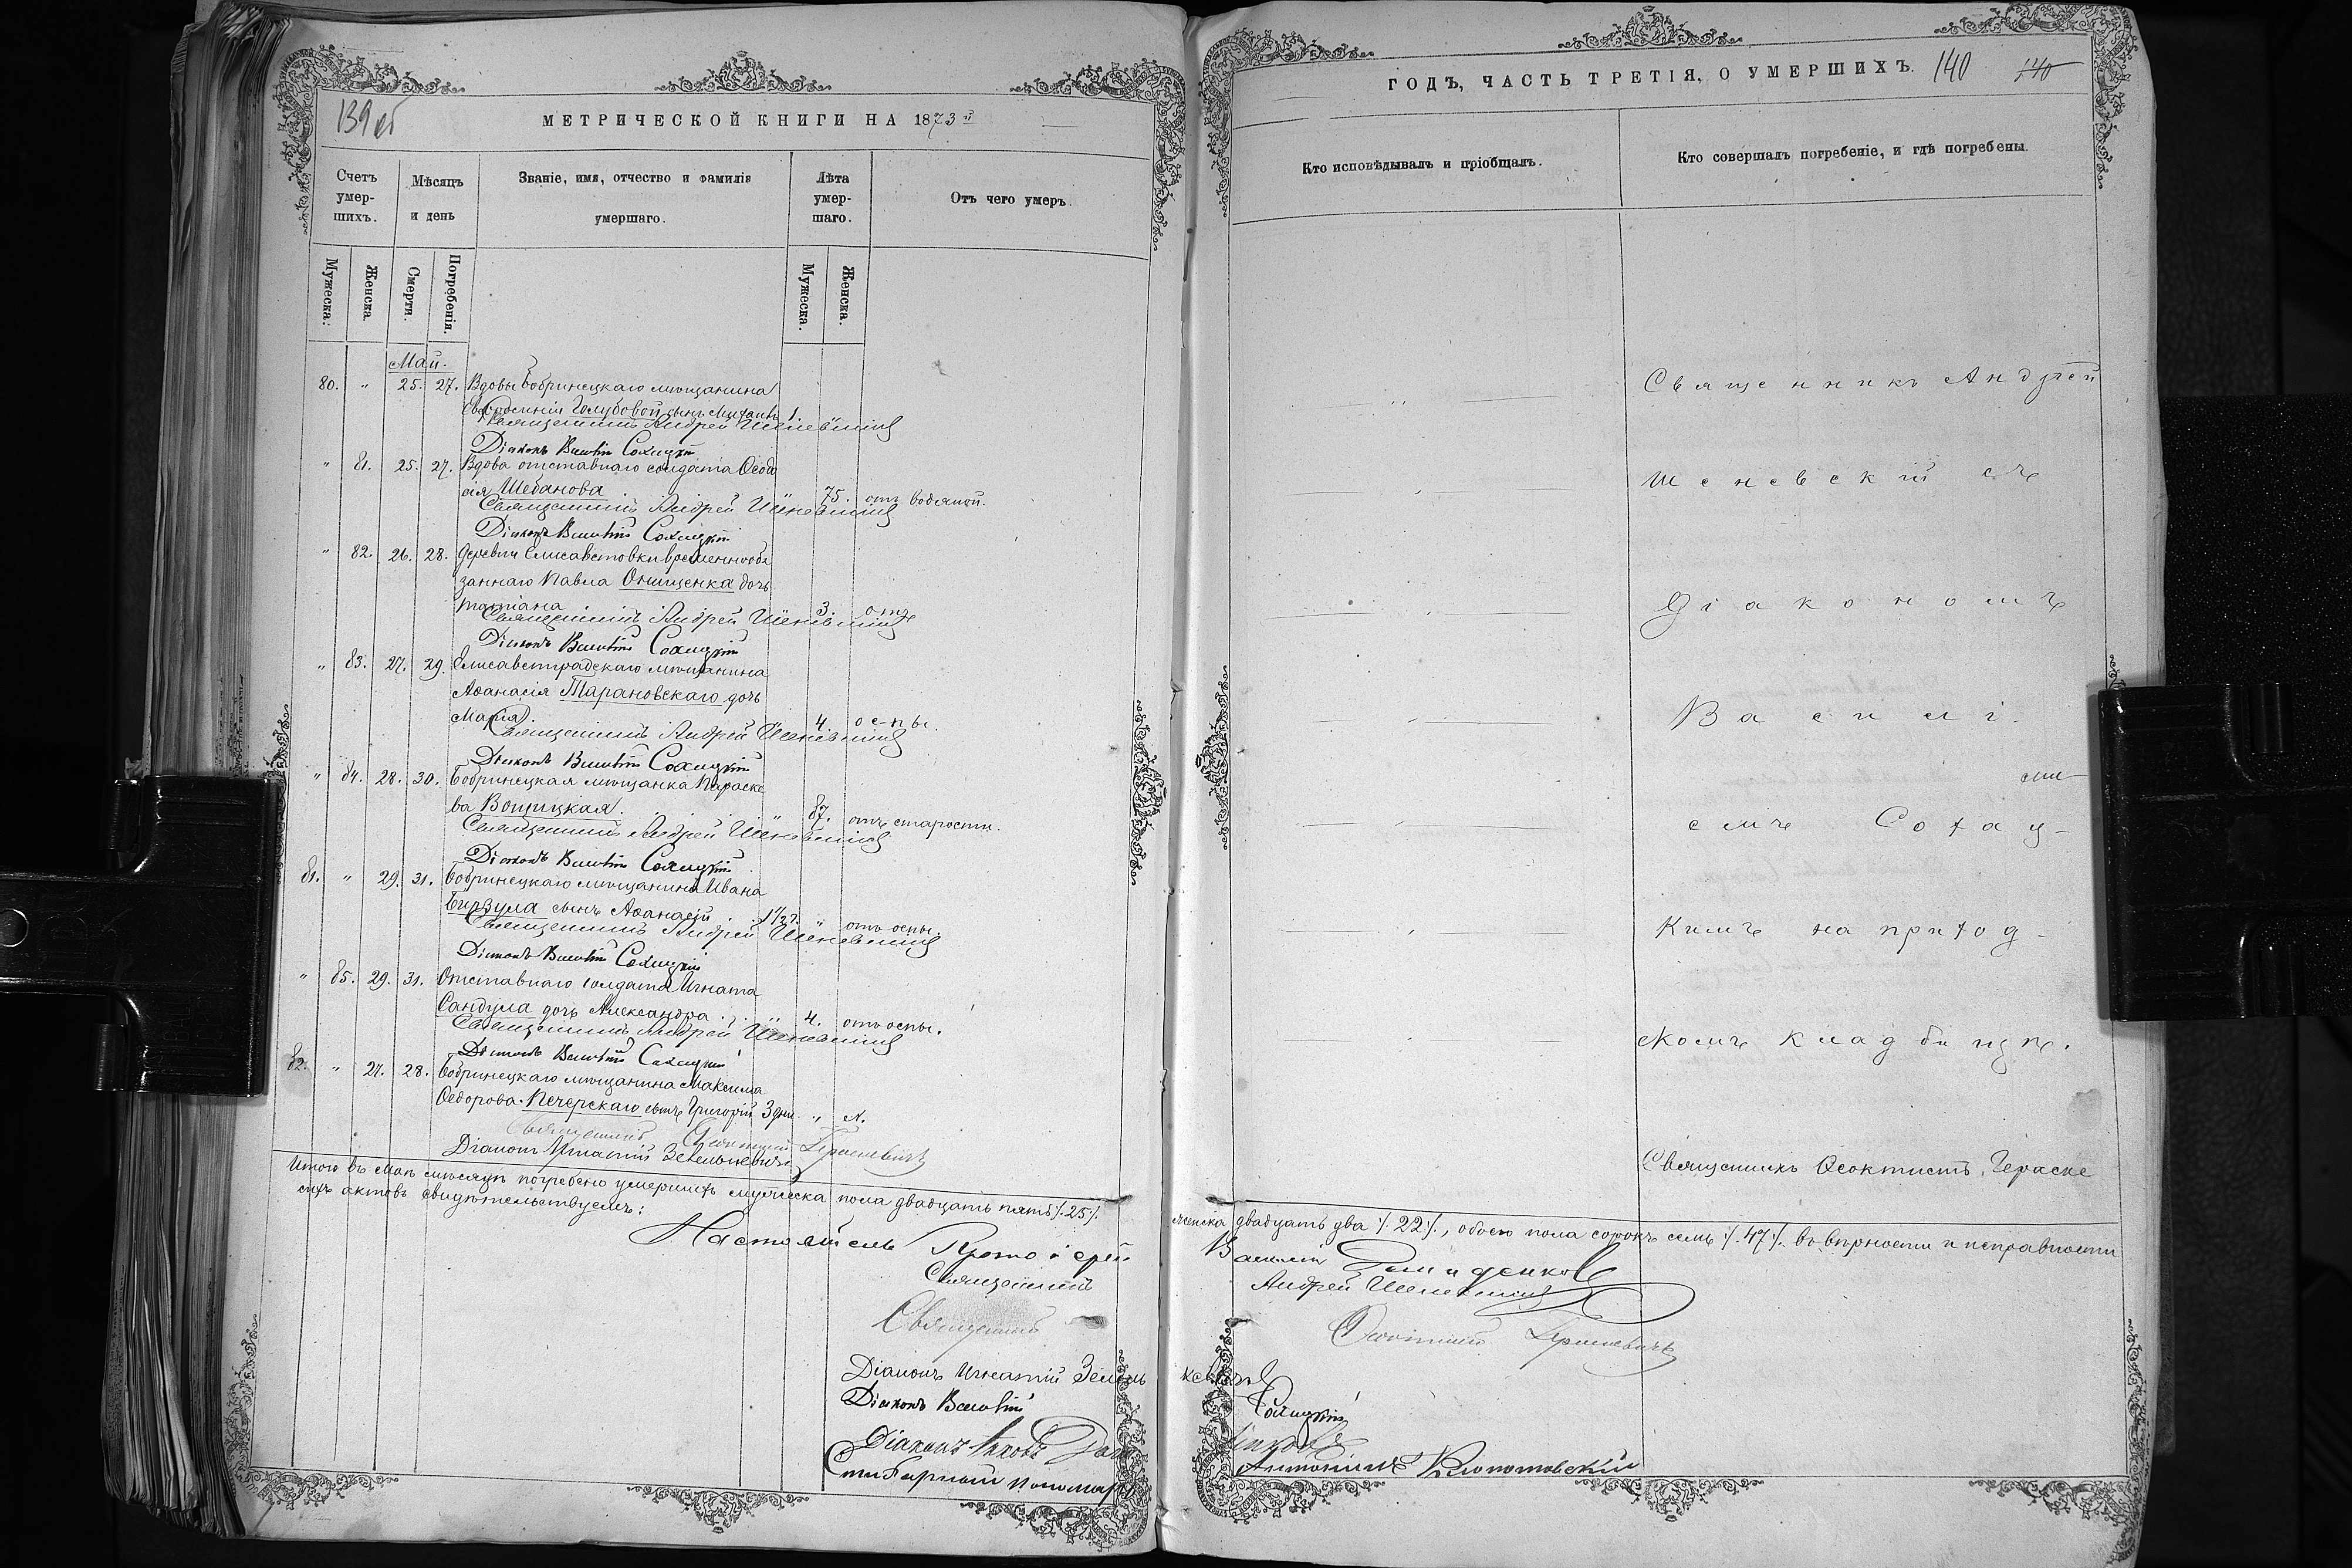 139 об
МЕТРИЧЕСКОЙ КНИГИ НА 1873й
Счетъ умер-шихъ.
Мѣсяцъ и день
Званіе, имя, отчество и фамилія умершаго.
Лѣта умер-шаго.
Отъ чего умеръ.
Мужеска:
Женска.
Смерти.
Погребенія.
Мужеска.
Женска.
Май.
80. " 25. 27. Вдовы бобринецкаго мѣщанина
Голубовой сынъ Михаилъ 1. "
Священникъ Андрей Шеневскій
Діаконъ Василій Сохацкій
" 81. 25. 27. Вдова отставнаго солдата Ѳеодо
сія Шебанова 75. отъ водяной.
Священникъ Андрей Шеневскій
Діаконъ Василій Сохацкій
" 82. 26. 28. Деревни Елисаветовки временнообя
заннаго Павла Онищенка дочь
Татіана 3. отъ
Священникъ Андрей Шеневскій
Діаконъ Василій Сохацкій
" 83. 27. 29. Елисаветградскаго мѣщанина
Аѳанасія Тарановскаго дочь
Марія. 4. оспы.
Священникъ Андрей Шеневскій
Діаконъ Василій Сохацкій
" 84. 28. 30. Бобринецкая мѣщанка Параске
ва 87. отъ старости.
Священникъ Андрей Шеневскій
Діаконъ Василій Сохацкій
81. " 29. 31. Бобринецкаго мѣщанина Ивана
Бирзула сынъ Аѳанасій 1 1/2 г. " отъ оспы.
Священникъ Андрей Шеневскій
Діаконъ Василій Сохацкій
" 85. 29. 31. Отставнаго солдата Игната
Сандула дочь Александра. 4. отъ оспы.
Священникъ Андрей Шеневскій
Діаконъ Василій Сохацкій
82. " 27. 28. Бобринецкаго мѣщанина Максима
Ѳедорова Печерскаго сынъ Григорій 3 дни "
Священникъ Ѳеоктистъ Гераскевичъ
Діаконъ Игнатій Зелькевичъ
Итого въ Маѣ мѣсяцѣ погребено умершихъ мужеска пола двадцать пять /.25/.
сихъ актовъ свидѣтельствуемъ:
Настоятель Протоіерей
Священникъ
Священникъ
Діаконъ Игнатій Зелель
Діаконъ Василій
Діаконъ Яковъ
Стихарный пономарь
ГОДЪ, ЧАСТЬ ТРЕТІЯ, О УМЕРШИХЪ. 140 140
Кто исповѣдывалъ и пріобщалъ.
Кто совершалъ погребеніе, и гдѣ погребены.
Священникъ Андрей
Шеневскій съ
Діакономъ
Василі-
емъ Сохац-
кимъ на приход-
скомъ кладбищѣ.
Священникъ Ѳеоктистъ Гераске
женска двадцать два /.22/., обоего пола сорокъ семь /.47/. въ вѣрности и исправности
Василій
Андрей Шеневскій
Ѳеоктистъ Гераскевичъ
кевичъ
Сохацкій
Антоній Клопотовскій